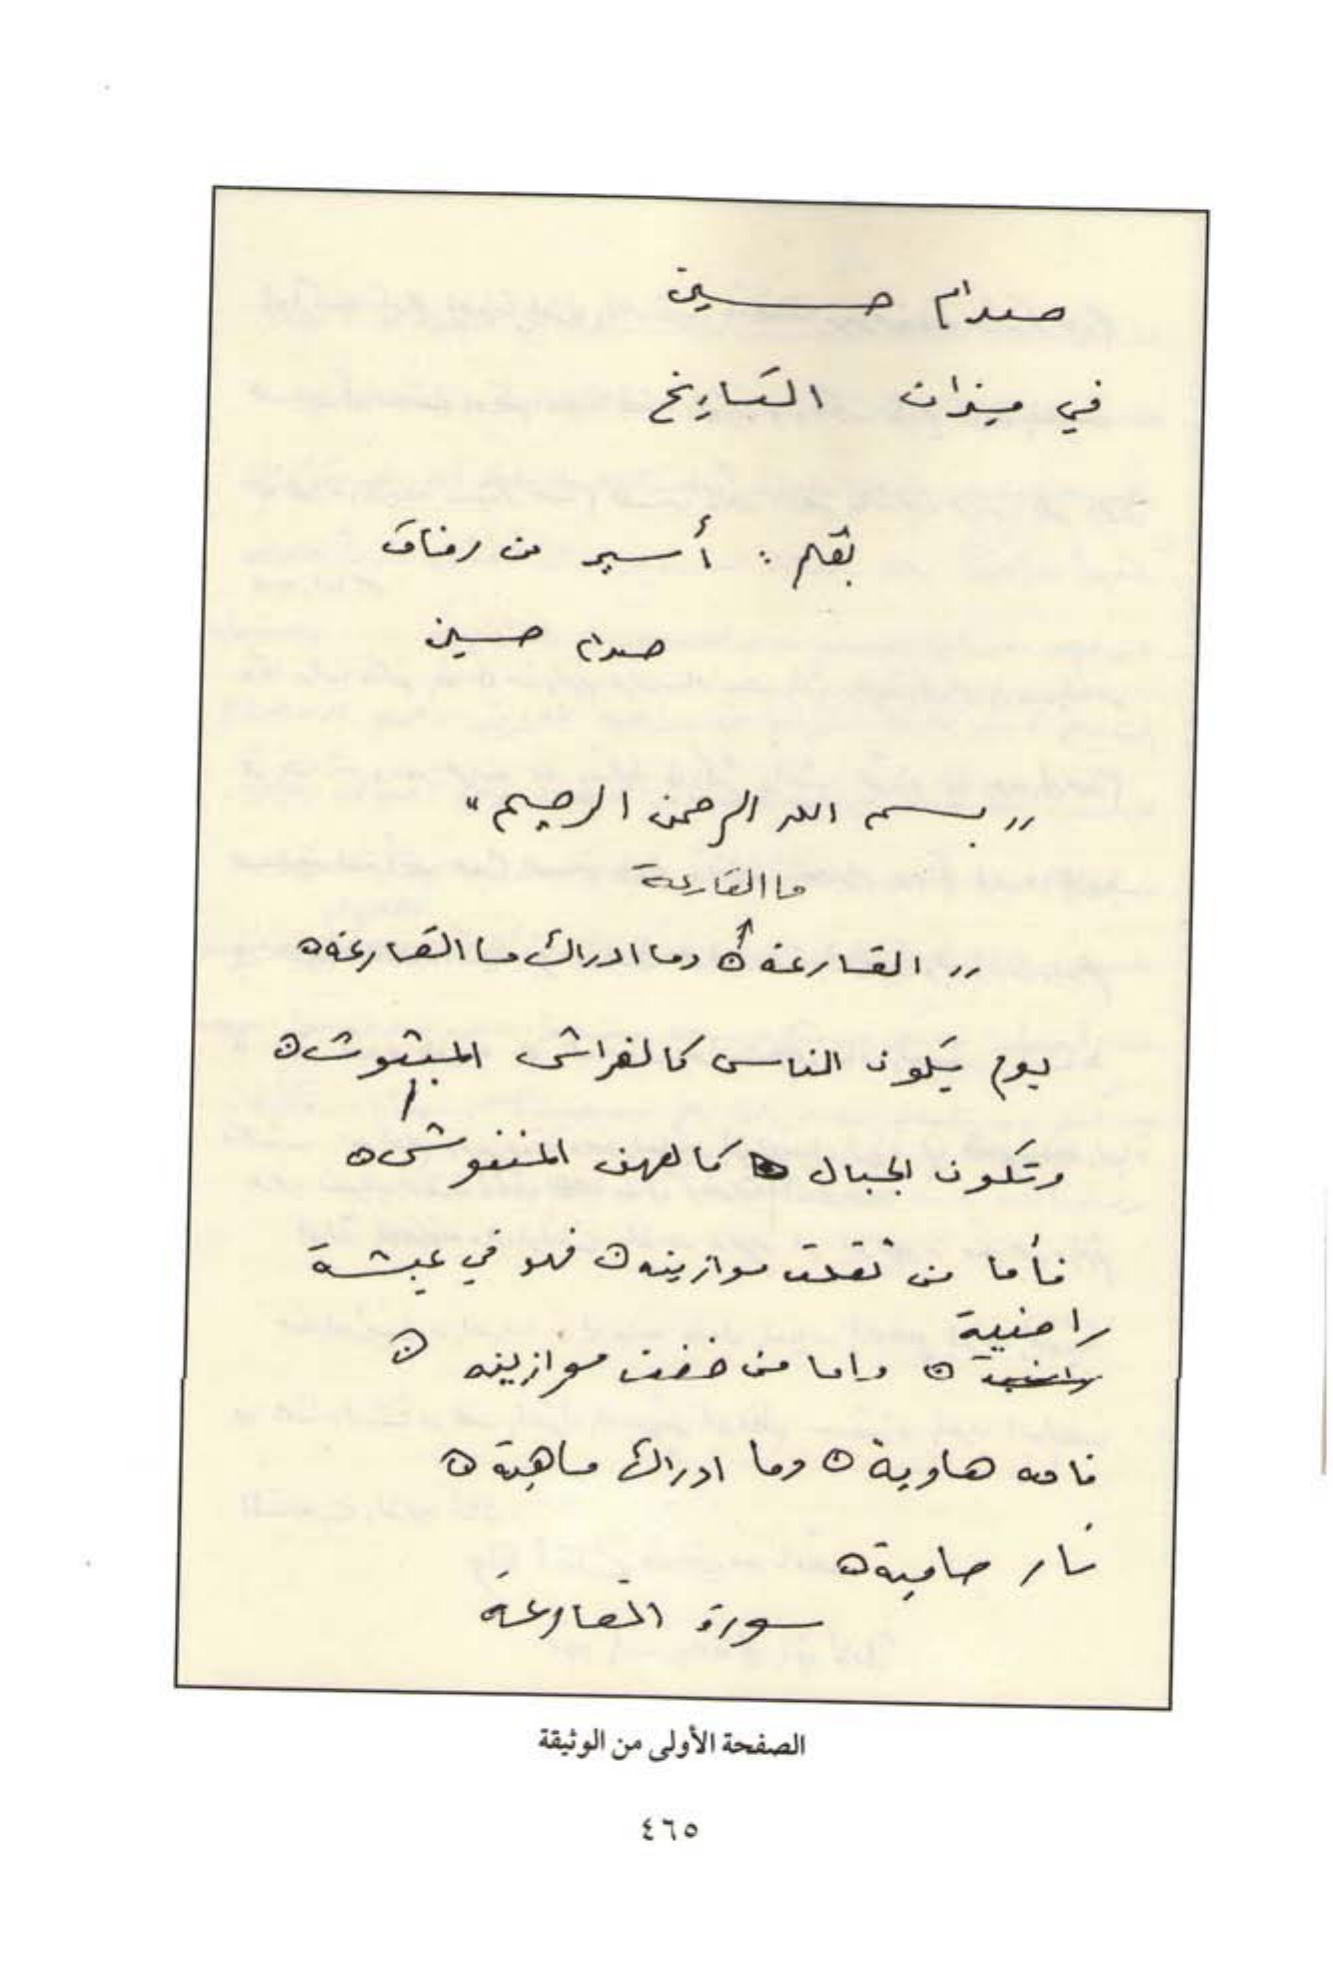 صدام حسين
في ميزان التاريخ
بقلم : أسير من رفاق
صدام حسين
"بسم الله الرحمن الرحيم"
ما القارعة
"القارعة ○ وما ادراك ما القارعة ○
يوم يكون الناس كالفراش المبثوث ○
وتكون الجبال كالعهن المنفوش ○
فأما من ثقلت موازينه ○ فهو في عيشة
راضية
راضية ○ واما من خفت موازينه ○
فامه هاوية ○ وما ادراك ماهية ○
نار حامية ○
سورة القارعة
الصفحة الأولى من الوثيقة
٤٦٥